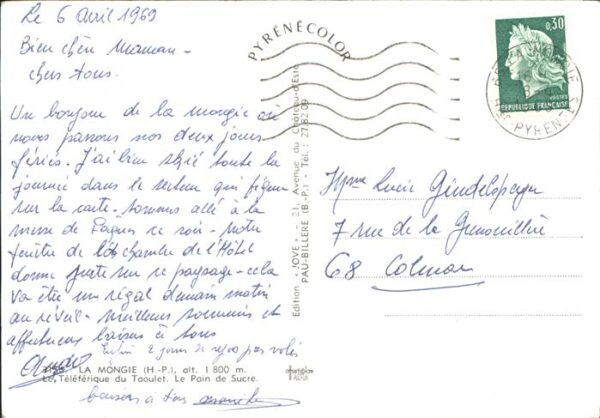 Le 6 Avril 1969
Bien chère Maman -
chers tous.
Un bonjour de la Mongie où
nous passons nos deux jours
fériés. J'ai bien skié toute la
journée dans le secteur qui figure
sur la carte. sommes allé à la
messe de Paques ce soir - notre
fenêtre de la chambre de l'Hôtel
donne juste sur ce paysage - cela
va être un régal demain matin
au réveil - meilleurs souvenirs et
affectueux baisers à tous
Enfin 2 jours de repos pas volés
LA MONGIE (H.-P.), alt. 1 800 m.
Le Téléférique du Taoulet. Le Pain de Sucre.
baisers à tous
PYRÉNÉCOLOR
Edition « JOVE » - 21, Avenue du Château-d'Este
PAU-BILLERE (B.-P.) - Tél.: 27.82.09
0,30
POSTES
REPUBLIQUE FRANÇAISE
HTES-PYRENEES
Mme Lucie Gindelsperger
7 rue de la Grenouillère
68 Colmar